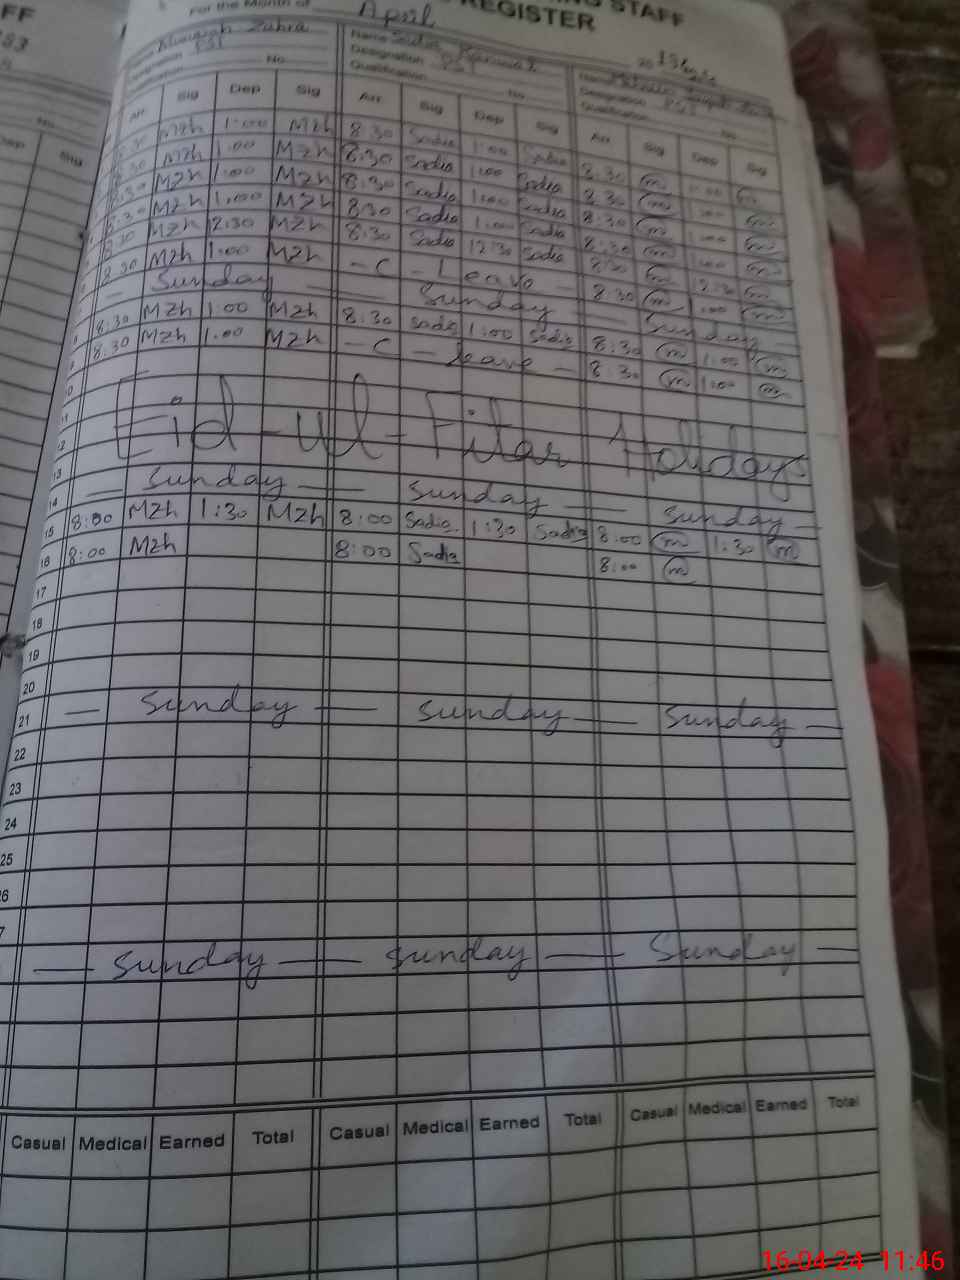 FF
STAFF
REGISTER
For the Month of April
20
Zahra
Name Sadia
Designation PST
Designation PST
Designation PST
Qualification
Qualification
Qualification
No
No
Arr Sig Dep Sig Arr Sig Dep Sig Arr Sig Dep Sig
8:30 Mzh 1:00 Mzh 8:30 Sadia 1:00 Sadia 8:30 m 1:00 m
8:30 Mzh 1:00 Mzh 8:30 Sadia 1:00 Sadia 8:30 m 1:00 m
8:30 Mzh 1:00 Mzh 8:30 Sadia 1:00 Sadia 8:30 m 1:00 m
8:30 Mzh 1:00 Mzh 8:30 Sadia 1:00 Sadia 8:30 m 1:00 m
8:30 Mzh 12:30 Mzh 8:30 Sadia 12:30 Sadia 8:30 m 12:30 m
8:30 Mzh 1:00 Mzh - C - Leave - 8:30 m 1:00 m
— Sunday — — Sunday — — Sunday —
8 8:30 Mzh 1:00 Mzh 8:30 Sadia 1:00 Sadia 8:30 m 1:00 m
9 8:30 Mzh 1:00 Mzh - C - leave - 8:30 m 1:00 m
10
11
12 Eid-ul-Fitar Holidays
13
14 — Sunday — — Sunday — — Sunday —
15 8:00 Mzh 1:30 Mzh 8:00 Sadia 1:30 Sadia 8:00 m 1:30 m
16 8:00 Mzh 8:00 Sadia 8:00 m
17
18
19
20
21 — Sunday — — Sunday — — Sunday —
22
23
24
25
26
7
— Sunday — — Sunday — — Sunday —
Casual Medical Earned Total Casual Medical Earned Total Casual Medical Earned Total
16-04-24 11:46